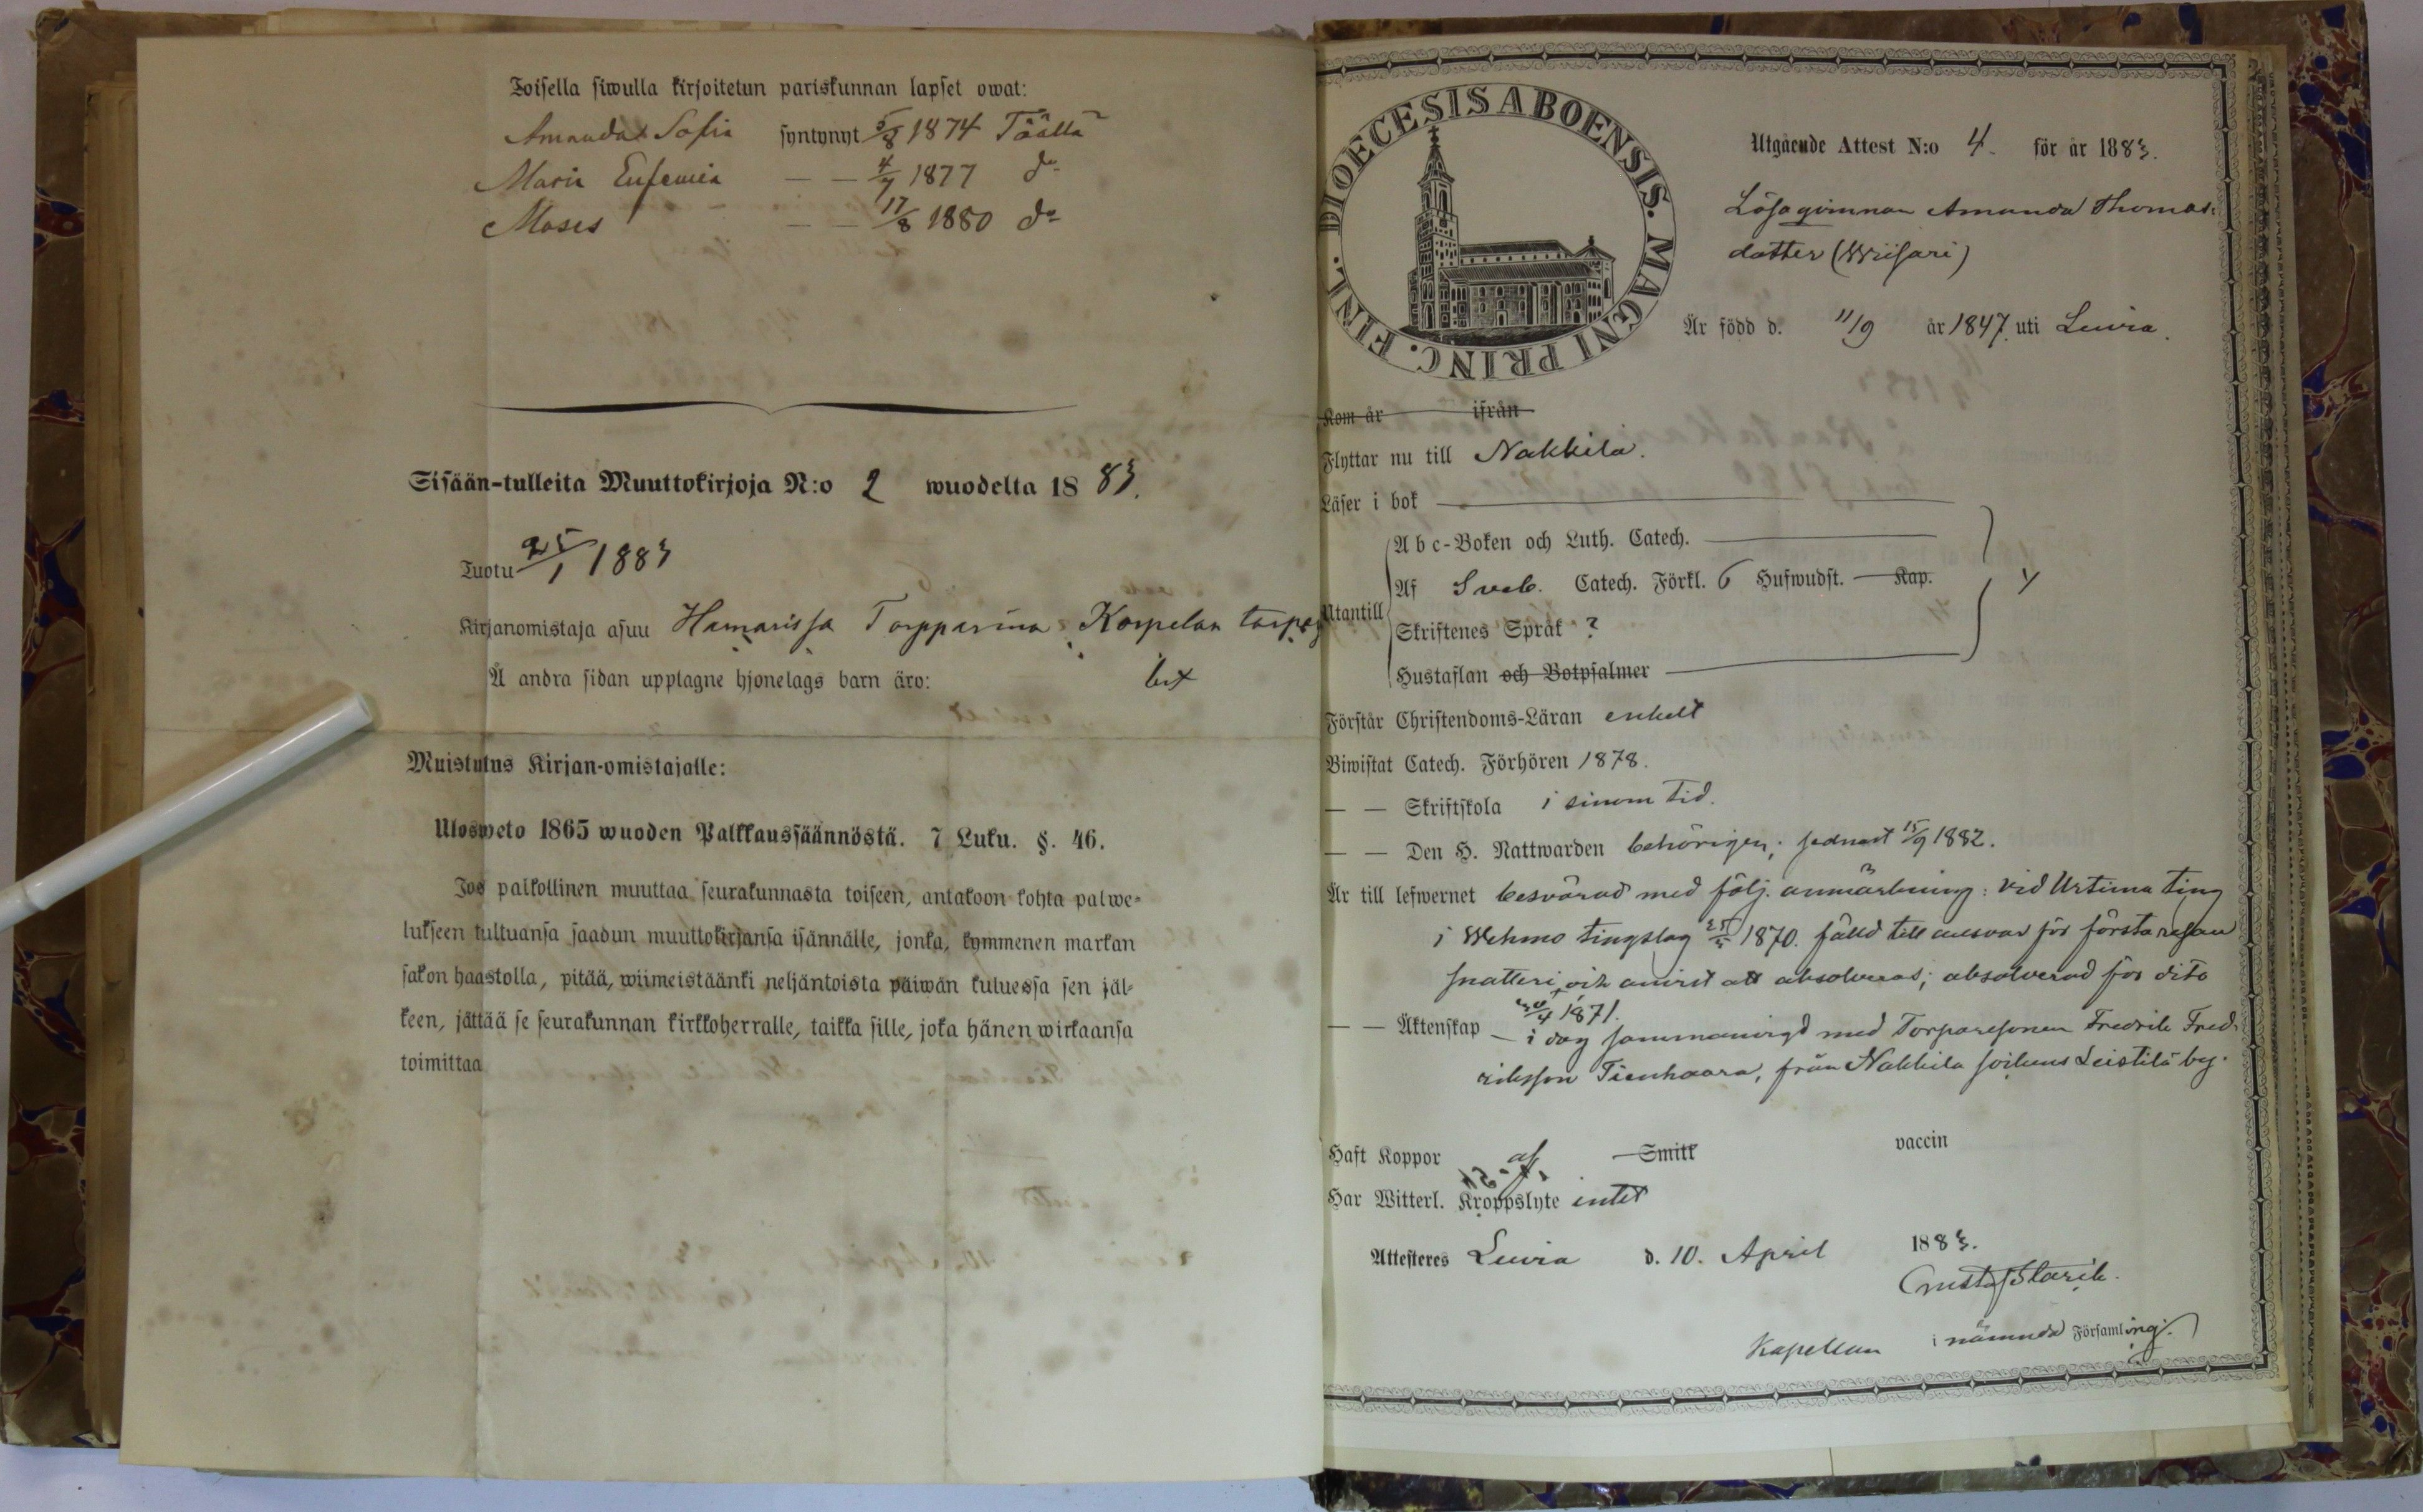 Toisella siwulla kirjoitetun pariskunnan lapset owat:
Amanda Sofia syntynyt 5/8 1874 Täällä
Maria Eufemia — — 4/7 1877 do
Moses — — 17/8 1880 do
Sisään-tulleita Muuttokirjoja N:o 2 wuodelta 1883.
Tuotu 25/1 1883
Kirjanomistaja asuu Hamarissa Torpparina Korpelan torpas
Å andra sidan upplagne hjonelags barn äro:
Muistutus Kirjan-omistajalle:
Ulosweto 1865 wuoden Palkkaussäännöstä. 7 Luku. §. 46.
Jos palkollinen muuttaa seurakunnasta toiseen, antakoon kohta palwe-
lukseen tultuansa saadun muuttokirjansa isännälle, jonka, kymmenen markan
sakon haastolla, pitää, wiimeistäänki neljäntoista päiwän kuluessa sen jäl-
keen, jättää se seurakunnan kirkkoherralle, taikka sille, joka hänen wirkaansa
toimittaa
DIOECESIS ABOENSIS. MAGNI PRINC. FINL.
Utgående Attest N:o 4. för år 1883.
Lösaqvinnan Amanda Thomas-
dotter (Wriisari)
Är född d. 11/9 år 1847. uti Luvia.
Kom år ifrån
Flyttar nu till Nakkila.
Läser i bok
Utantill
A b c-Boken och Luth. Catech.
Af Sveb. Catech. Förkl. 6 Hufwudst. Kap.
Skriftenes Språk ?
Hustaflan och Botpsalmer
Förstår Christendoms-Läran enkelt
Biwistat Catech. Förhören 1878.
— — Skriftskola i sinom tid.
— — Den H. Nattwarden behörigen; sednast 15/9 1882.
Är till lefwernet besvärad med följ. anmärkning: vid Urtima ting
i Wehmo tingslag 1870. fälld till ansvar för första resan
snatteri, och anvist att absolveras; absolverad för dito
30/4 1871.
— — Äktenskap — i dag sammanvigd med Torparesonen Fredrik Fred-
riksson Tienhaara, från Nakkila sockens Leistilä by.
Haft Koppor af Smitt vaccin
Har Witterl. Kroppslyte intet
Attesteres Luvia d. 10. April 1883.
Gustaf Starck.
Kapellan i nämnda Församling.